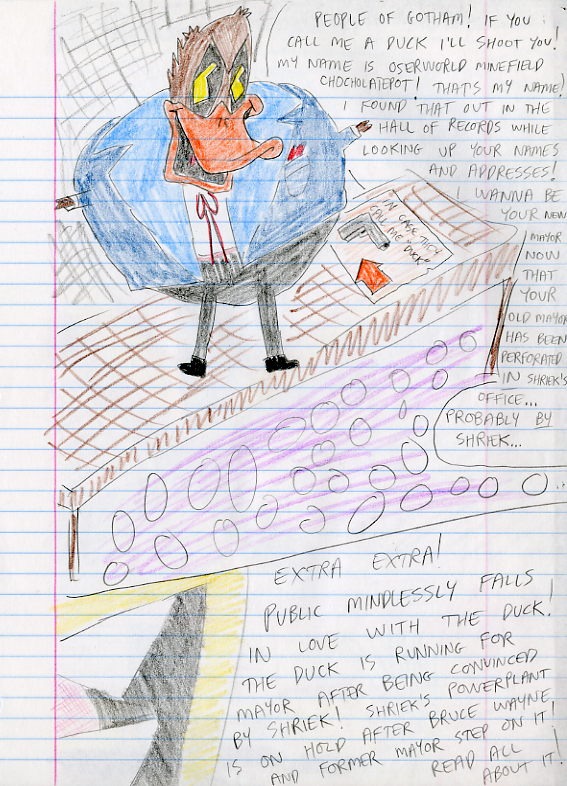 PEOPLE OF GOTHAM! IF YOU
CALL ME A DUCK I'LL SHOOT YOU!
MY NAME IS OSERWORLD MINEFIELD
CHOCHOLATEPOT! THAT'S MY NAME!
I FOUND THAT OUT IN THE
HALL OF RECORDS WHILE
LOOKING UP YOUR NAMES
AND ADDRESSES!
I WANNA BE
YOUR NEW
MAYOR
NOW
THAT
YOUR
OLD MAYOR
HAS BEEN
PERFORATED
IN SHRIEK'S
OFFICE...
PROBABLY BY
SHRIEK...
IN CASE THEY
CALL ME "DUCK"
EXTRA EXTRA!
PUBLIC MINDLESSLY FALLS
IN LOVE WITH THE DUCK!
THE DUCK IS RUNNING FOR
MAYOR AFTER BEING CONVINCED
BY SHRIEK! SHRIEK'S POWERPLANT
IS ON HOLD AFTER BRUCE WAYNE
AND FORMER MAYOR STEP ON IT!
READ ALL
ABOUT IT!